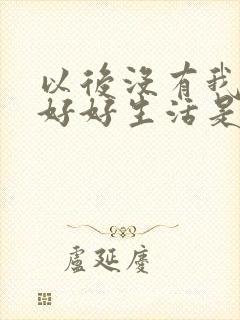 以後沒有我
好好生活是
盧延慶